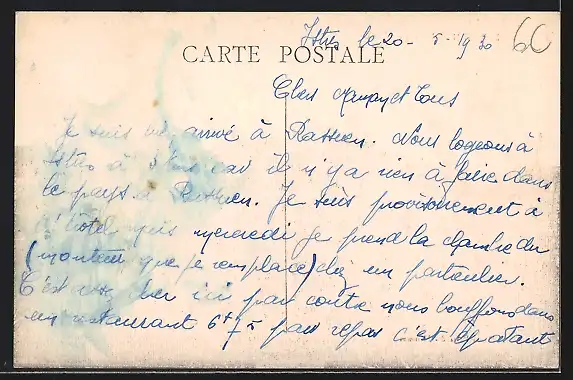 Istres le 20 - 5 - 1930
60
CARTE POSTALE
Chers et Tous
Je suis bien arrivé à Rassuen. Nous logeons à
Istres à car il n'y a rien à faire dans
le pays à Rassuen. Je suis provisoirement à
l'hotel puis mercredi je prend la chambre du
(monteur que je remplace) chez un particulier.
C'est assez cher ici par contre nous bouffons dans
un restaurant 6 + 7 par repas c'est épatant